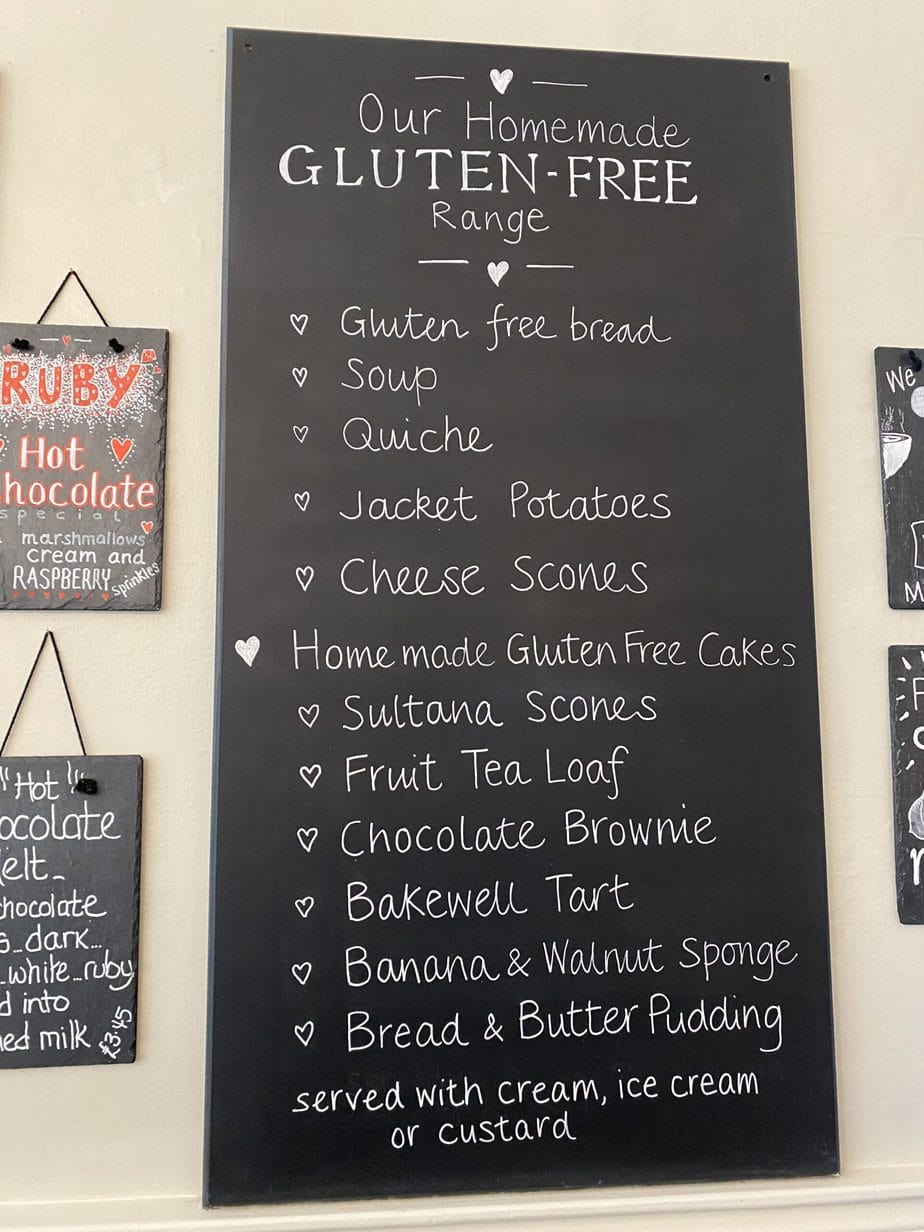 Our Homemade
GLUTEN-FREE
Range
Gluten free bread
Soup
Quiche
Jacket Potatoes
Cheese Scones
Homemade Gluten Free Cakes
Sultana Scones
Fruit Tea Loaf
Chocolate Brownie
Bakewell Tart
Banana & Walnut Sponge
Bread & Butter Pudding
served with cream, ice cream
or custard
RUBY
Hot
hocolate
special
marshmallows
cream and
RASPBERRY sprinkles
Hot
ocolate
elt_
hocolate
s...dark...
..white...ruby
d into
ed milk £3.45
We
M